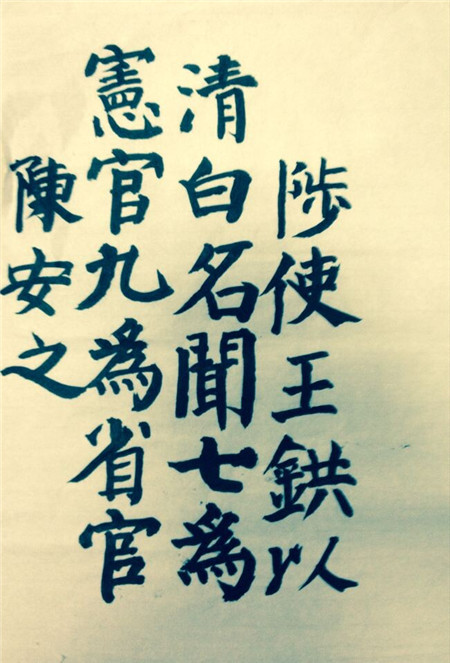 陟使王鉷以
清白名聞七為
憲官九為省官
陳安之